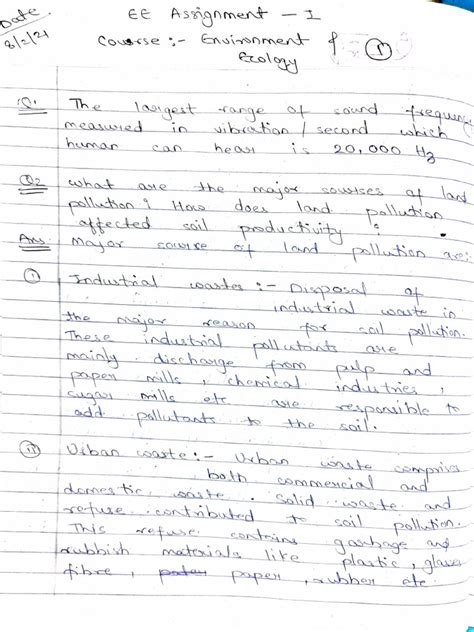 Date.
8/2/21
EE Assignment - I
Course :- Environment &
Ecology
①
Q1 The largest range of sound frequency
measured in vibration / second which
human can hear is 20,000 Hz
Q2 what are the major sources of land
pollution? How does land pollution
affected soil productivity?
Ans Major source of land pollution are:
① Industrial wastes :- Disposal of
industrial waste in
the major reason for soil pollution.
These industrial pollutants are
mainly discharge from pulp and
paper mills, chemical industries,
sugar mills etc are responsible to
add pollutants to the soil.
⑪ Urban waste :- Urban waste comprises
both commercial and
domestic waste. Solid waste and
refuse contributed to soil pollution.
This refuse contains garbage and
rubbish materials like plastic, glass
fibre, paper, rubber etc.